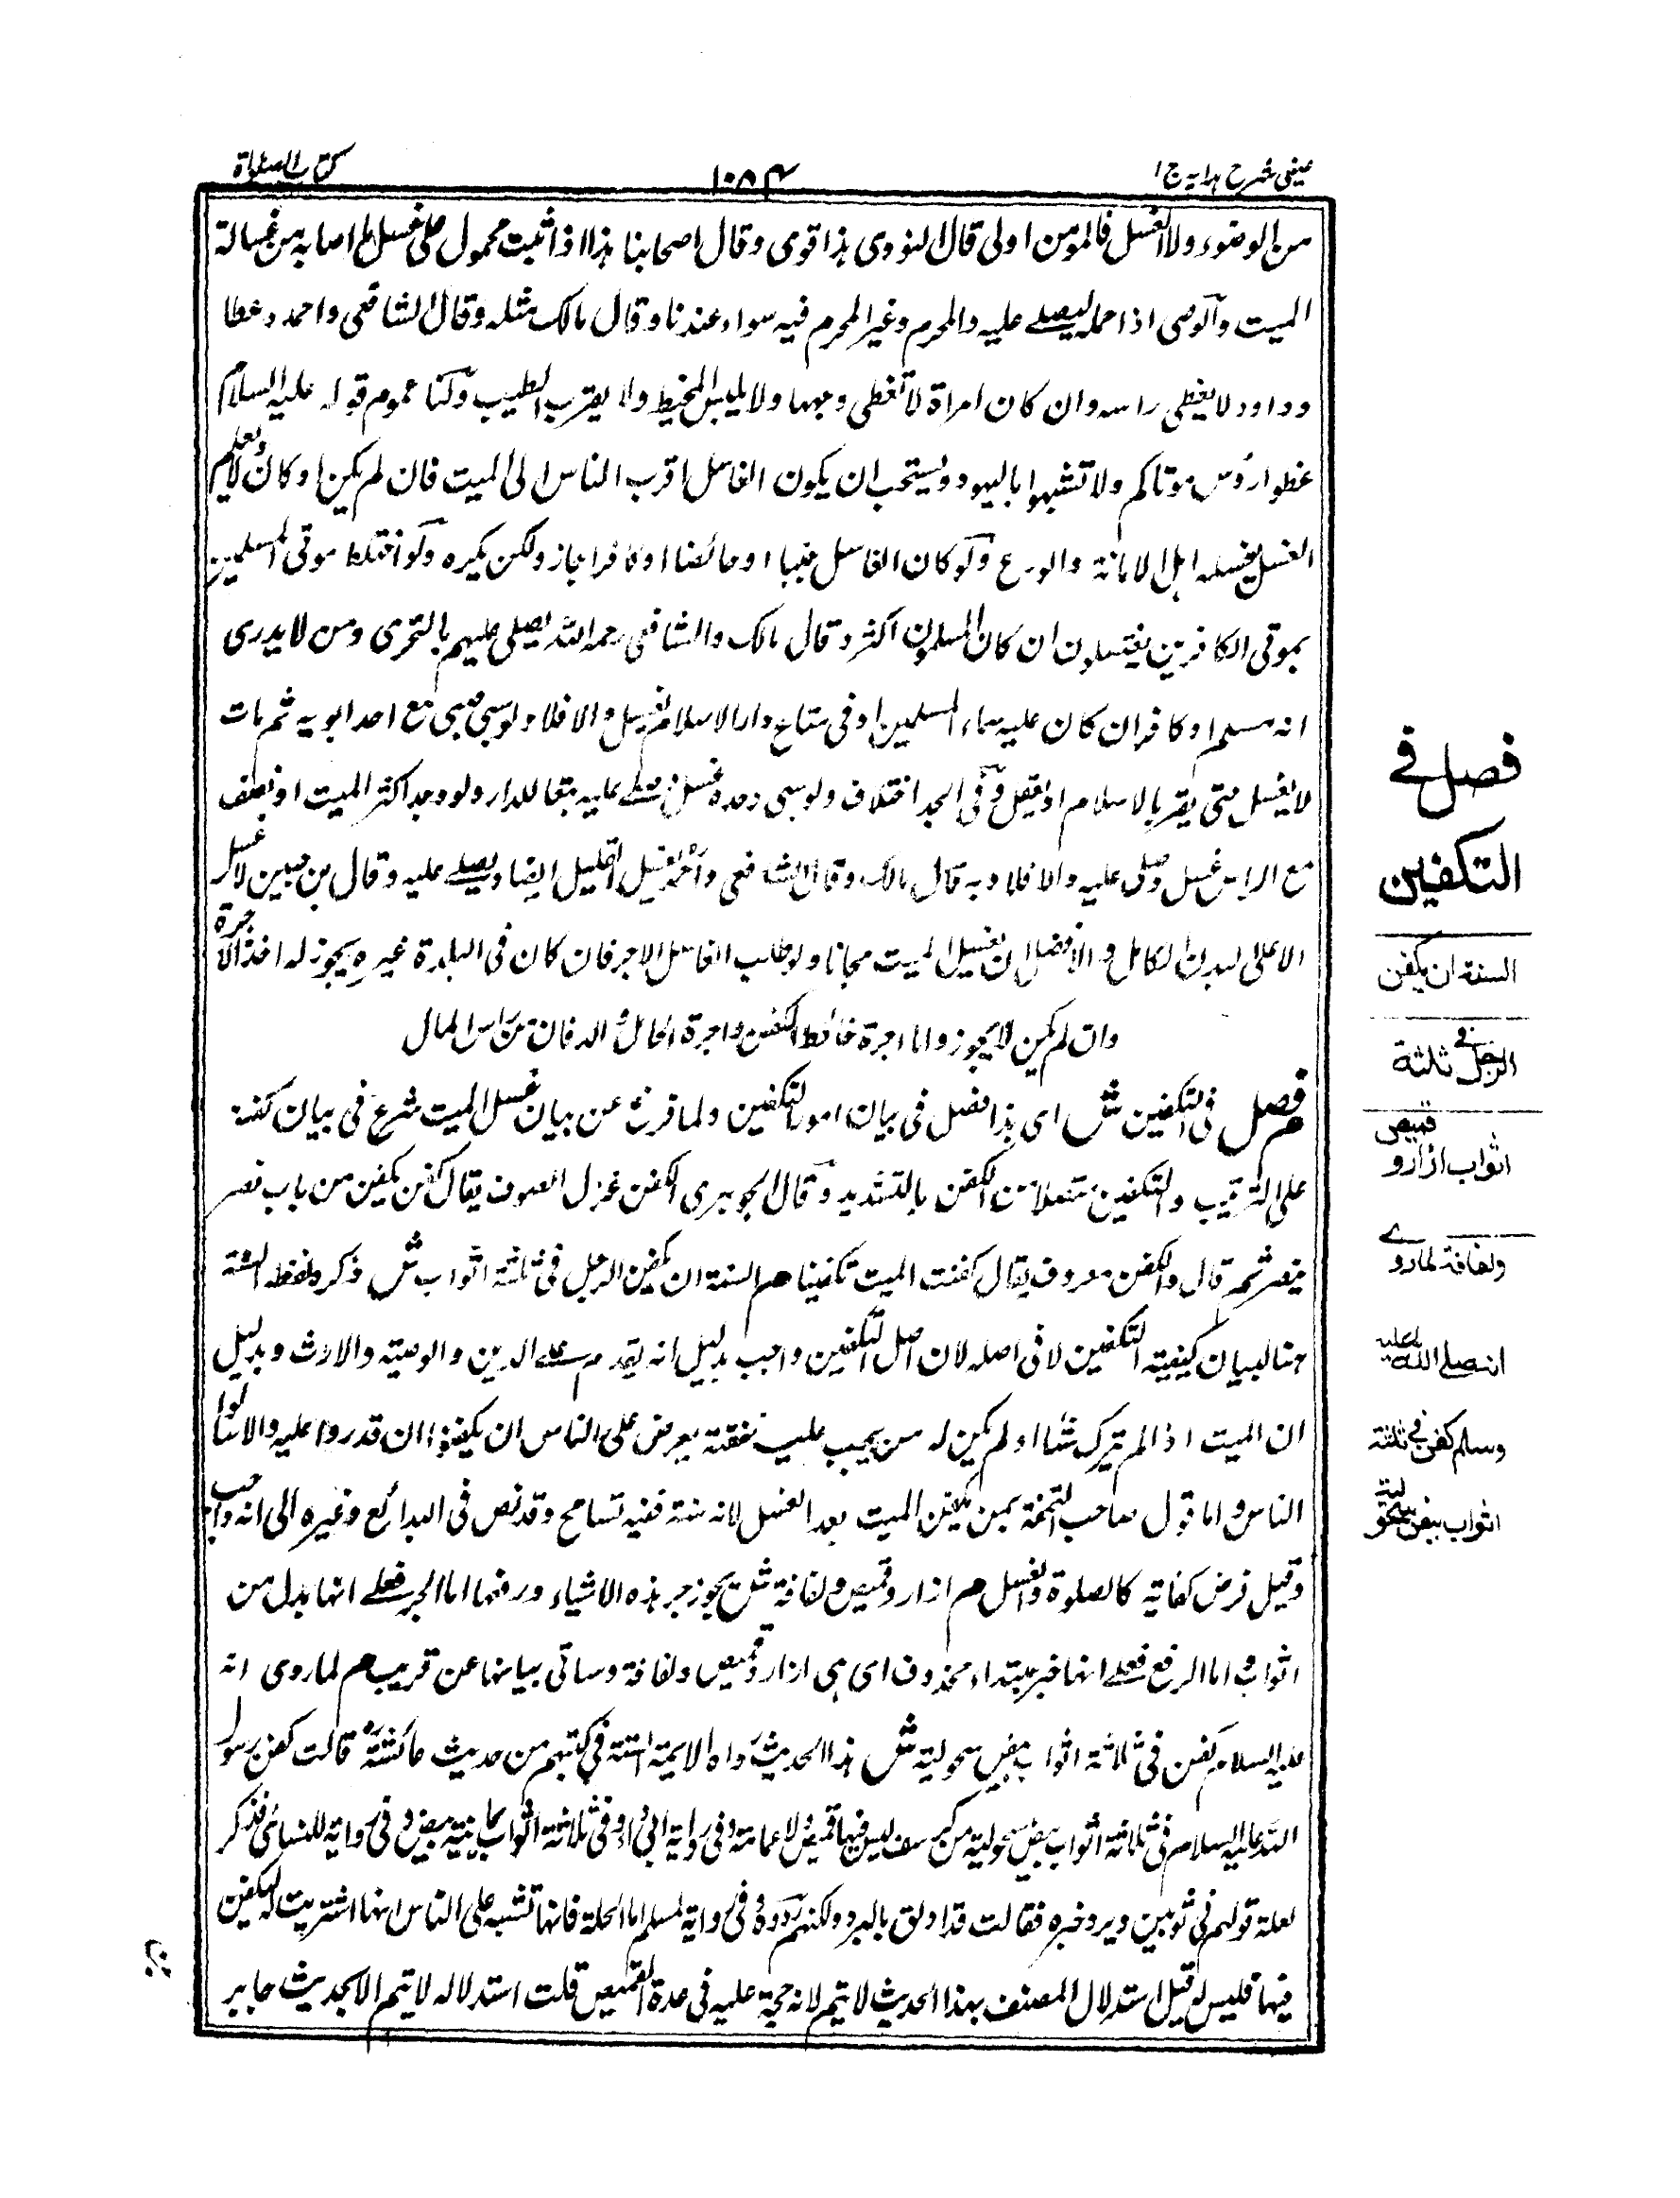 عینی شرح ہدایہ ج ١
١٠٨٣
کتاب الصلواة
من الوضوء ولا الغسل فالمومن اولى قال النووى ہذا قوى وقال اصحابنا ہذا اذا ثبت محمول على غسل ما اصابه من غسالة
الميت والوصى اذا حمله ليصلے عليه والمحرم وغير المحرم فيه سواء عندنا وقال مالک مثله وقال الشافعى واحمد وعطا
وداود لا يغطى راسه وان كان امراة لا تغطى وجهها ولا يلبس المخيط ولا يقرب الطيب ولنا عموم قوله عليه السلام
غطوا رؤس موتاكم ولا تشبهوا باليهود ويستحب ان يكون الغاسل اقرب الناس الى الميت فان لم يكن او كان لا يعلم
الغسل يغسله اہل الامانة والورع ولو كان الغاسل جنبا او حائضا او كافرا جاز ولكن يكره ولو اختلط موتى المسلمين
بموتى الكافرين يغتسلون ان كان المسلمون اكثر وقال مالک والشافعى رحمہ اللہ يصلى عليهم بالتحرى ومن لا يدرى
انه مسلم او كافر ان كان عليه سماء المسلمين او فى متاع دار الاسلام يغسل والا فلا ولو سبى صبى مع احد ابويه ثم مات
لا يغسل حتى يقر بالاسلام او يعقل وفى الجد اختلاف ولو سبى وحده غسل وصلے عليه تبعا للدار ولو وجد اكثر الميت او نصف
مع الراس غسل وصلى عليه والا فلا وبه قال مالک وقال الشافعى واحمد يغسل القليل ايضا ويصلے عليه وقال بن حبيب لا غسل
الا على البدن الكامل والافضل ان يغسل الميت مجانا ولو طلب الغاسل الاجر فان كان فى البلدة غيره يجوز له اخذ الاجرة
وان لم يكن لا يجوز واما اجرة خائط الكفن واجرة الحمال والدفان من راس المال
م فصل فى التكفين ش اى ہذا فصل فى بيان امور التكفين ولما فرغ عن بيان غسل الميت شرع فى بيان كفنه
على الترتيب والتكفين من الكفن بالتشديد وقال الجوہرى الكفن غزل الصوف يقال كفن يكفن من باب نصر
ينصر ثم قال والكفن معروف يقال كفنت الميت تكفينا م السنة ان يكفن الرجل فى ثلثة اثواب ش ذكر لفظ السنة
ہنا لبيان كيفية التكفين لا فى اصله لان اصل التكفين واجب بدليل انه يقدم علے الدين والوصية والارث وبدليل
ان الميت اذا لم يترک شئا او لم يكن له من يجب عليه نفقته يعرض على الناس ان يكفنوه ان قدروا عليه والا سالوا
الناس واما قول صاحب التحفة ثم يكفن الميت بعد الغسل لانه سنة ففيه تسامح وقد نص فى البدائع وغيره الى انه واجب
وقيل فرض كفاية كالصلوة والغسل م ازار وقميص ولفافة ش يجوز جر ہذه الاشياء ورفعها اما الجر فعلے انها بدل من
اثواب واما الرفع فعلے انها خبر مبتداء محذوف اى ہى ازار وقميص ولفافة وساتى بيانها عن قريب م لما روى انه
عليه السلام كفن فى ثلاثة اثواب بيض سحولية ش ہذا الحديث رواه الايمة الستة فى كتبهم من حديث عائشة قالت كفن رسول
اللہ عليه السلام فى ثلاثة اثواب بيض سحولية من كرسف ليس فيها قميص ولا عمامة وفى رواية ابى داود فى ثلاثة اثواب يمانية بيض وفى رواية للنسائى فذكر
لعائشة قولهم فى ثوبين وبرد حبره فقالت قد اوتى بالبرد ولكنهم ردوه وفى رواية لمسلم اما الحلة فانها تشبه على الناس انها اشتريت له ليكفن
فيها فليس له قيل استدلال المصنف بهذا الحديث لا يتم لانه حجة عليه فى عدة القميص قلت استدلاله لا يتم الا بحديث جابر
فصل فے
التكفين
السنة ان يكفن
الرجل فى ثلثة
اثواب ازار و قميص
ولفافة لما روے
انه صلے الله عليه
وسلم كفن فى ثلثة
اثواب بيض سحولية